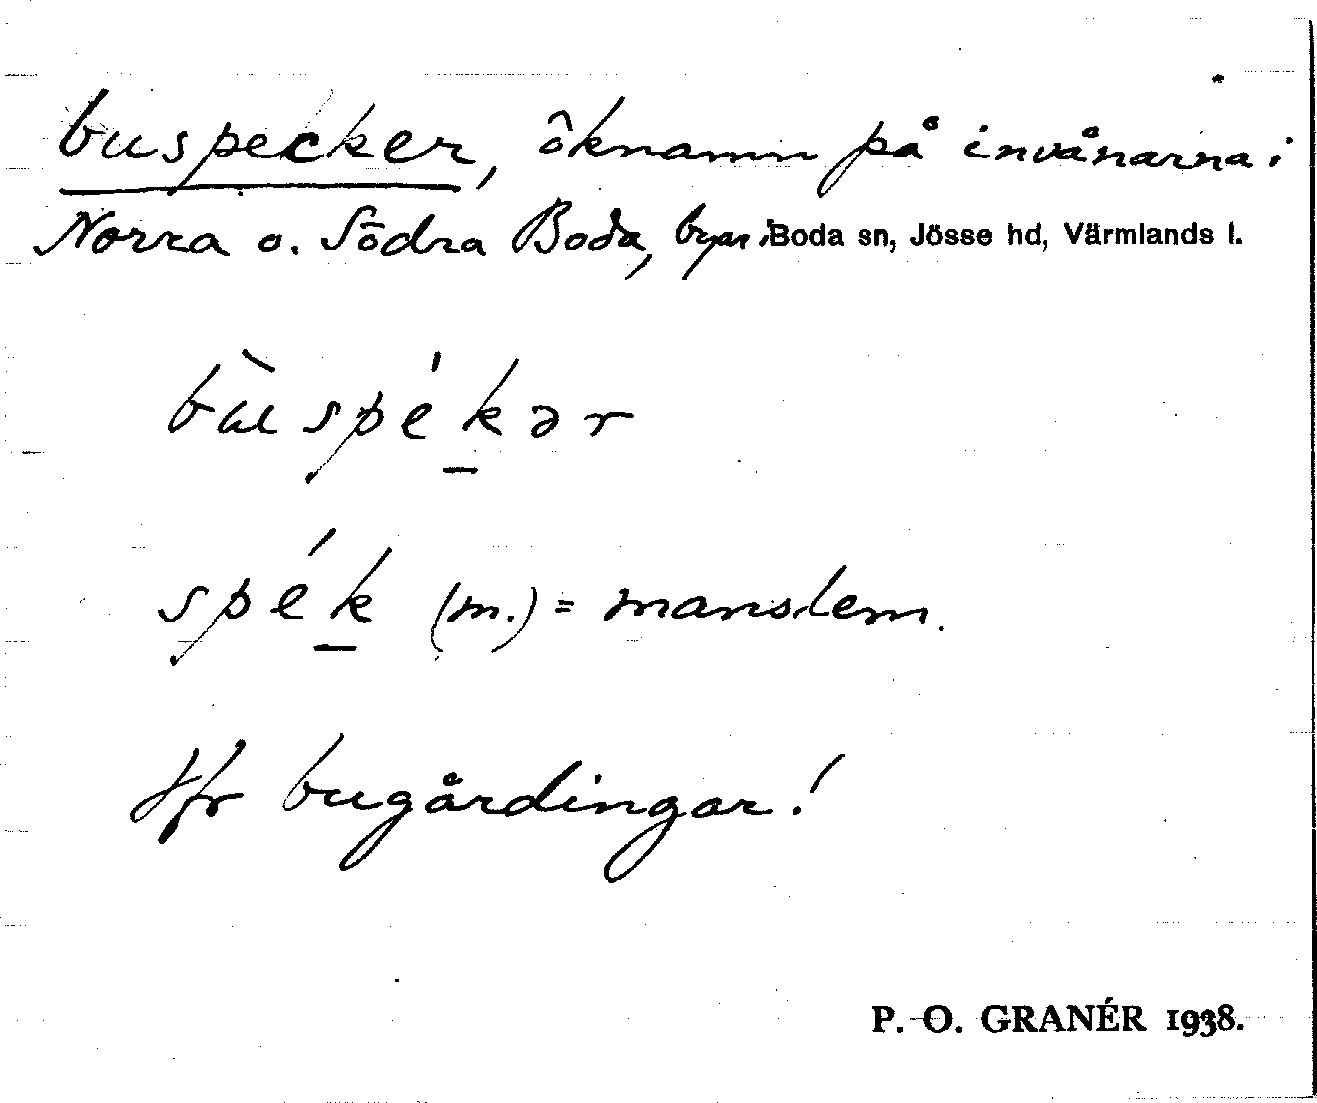 buspecker, öknamn på invånarna i
Norra o. Södra Boda, byar i Boda sn, Jösse hd, Värmlands l.
bùspékər
spék (m.) = manslem.
Jfr bugårdingar!
P.-O. GRANÉR 1938.